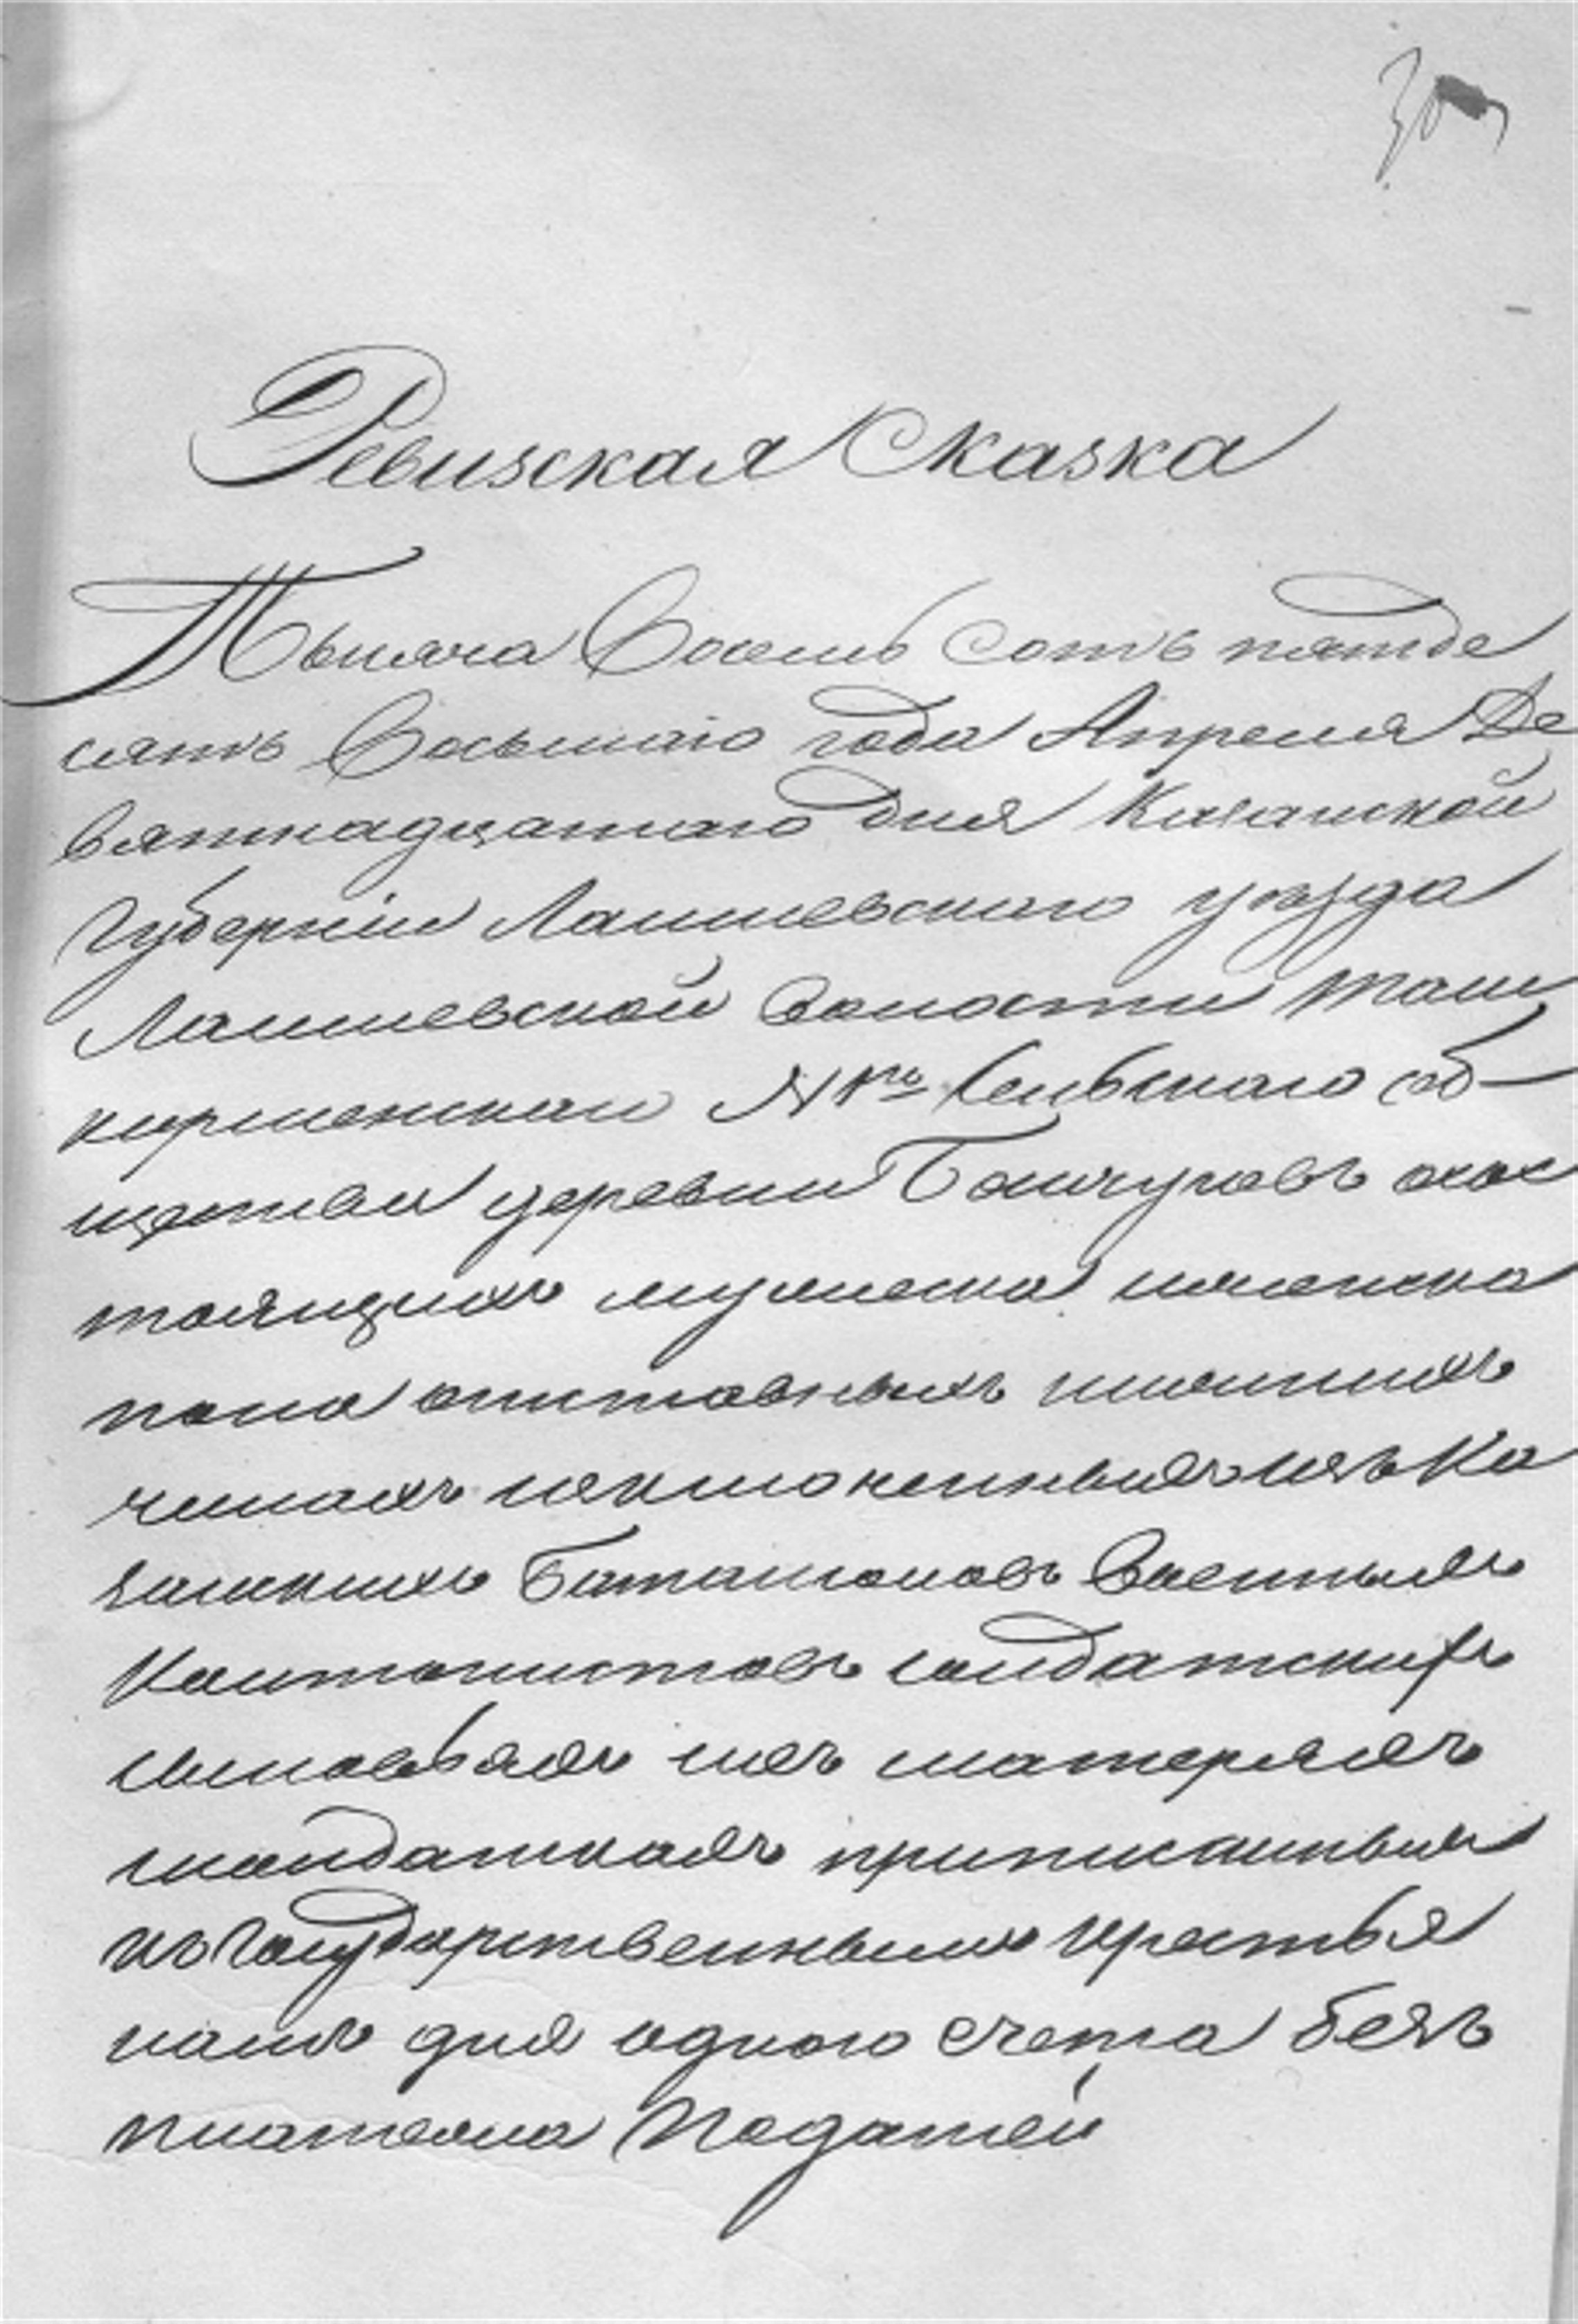 Ревизская Сказка
Тысяча Восемь сотъ пятьде
сятъ Восьмаго года Апреля Де
вятнадцатаго дня Казанской
Губерніи Лаишевскаго уѣзда
Лаишевской Волости Таш
кирменскаго Сельскаго об-
щества деревни состо
тоящихъ мужеска и женска
пола отставныхъ нижнихъ
чинахъ изключенныхъ изъ Ка
занскихъ Баталіоновъ Военныхъ
Кантонистовъ солдатскихъ
сыновьяхъ ихъ матеряхъ
солдаткахъ приписанныхъ
къ Государственнымъ крестья
намъ для одного счета безъ
платежа Податей